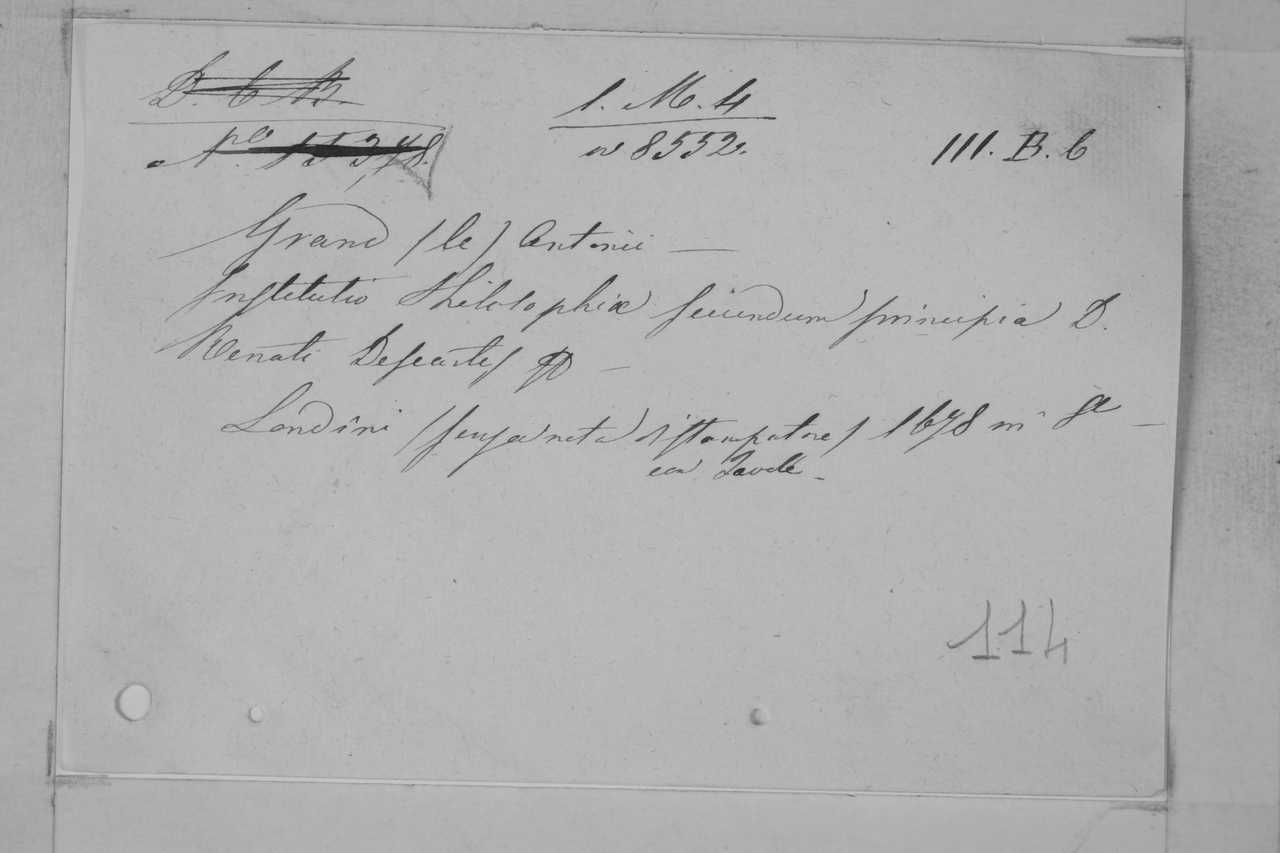 1. M. 4
8552.
III. B. 6
Grand (le) Antonii —
Institutio Philosophiæ secundum principia D.
Renati Descartes —
Londini (senza nota di stampatore) 1678 in 8º —
con Tavole —
114